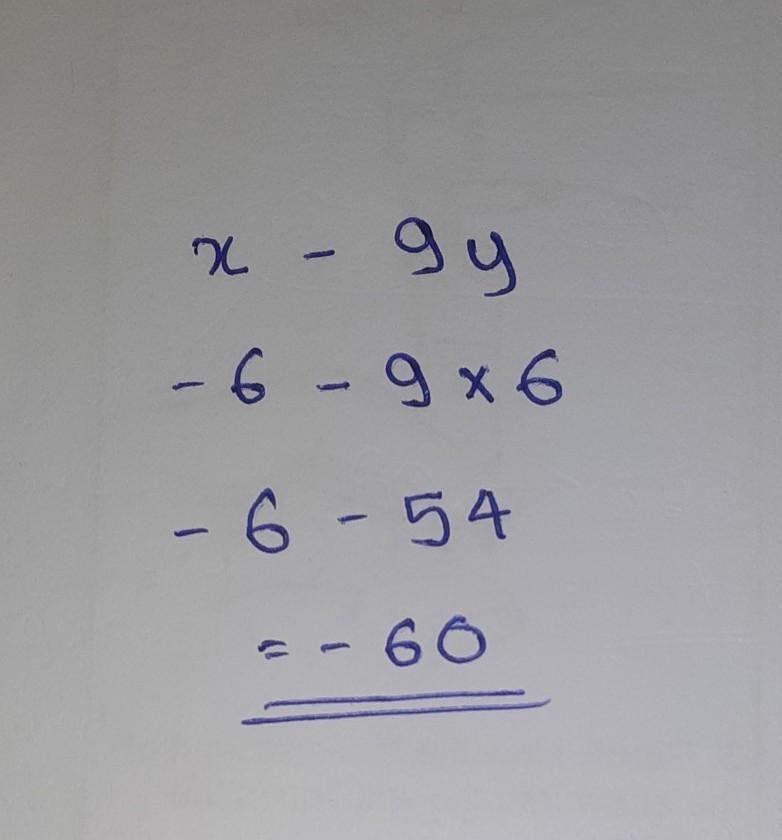 x - 9y
- 6 - 9 × 6
- 6 - 54
= - 60